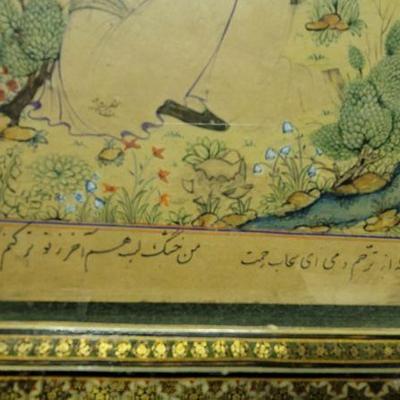 ه از ترحم دمی ای سحاب رحمت من خشک لب هم آخر ز تو تر کنم